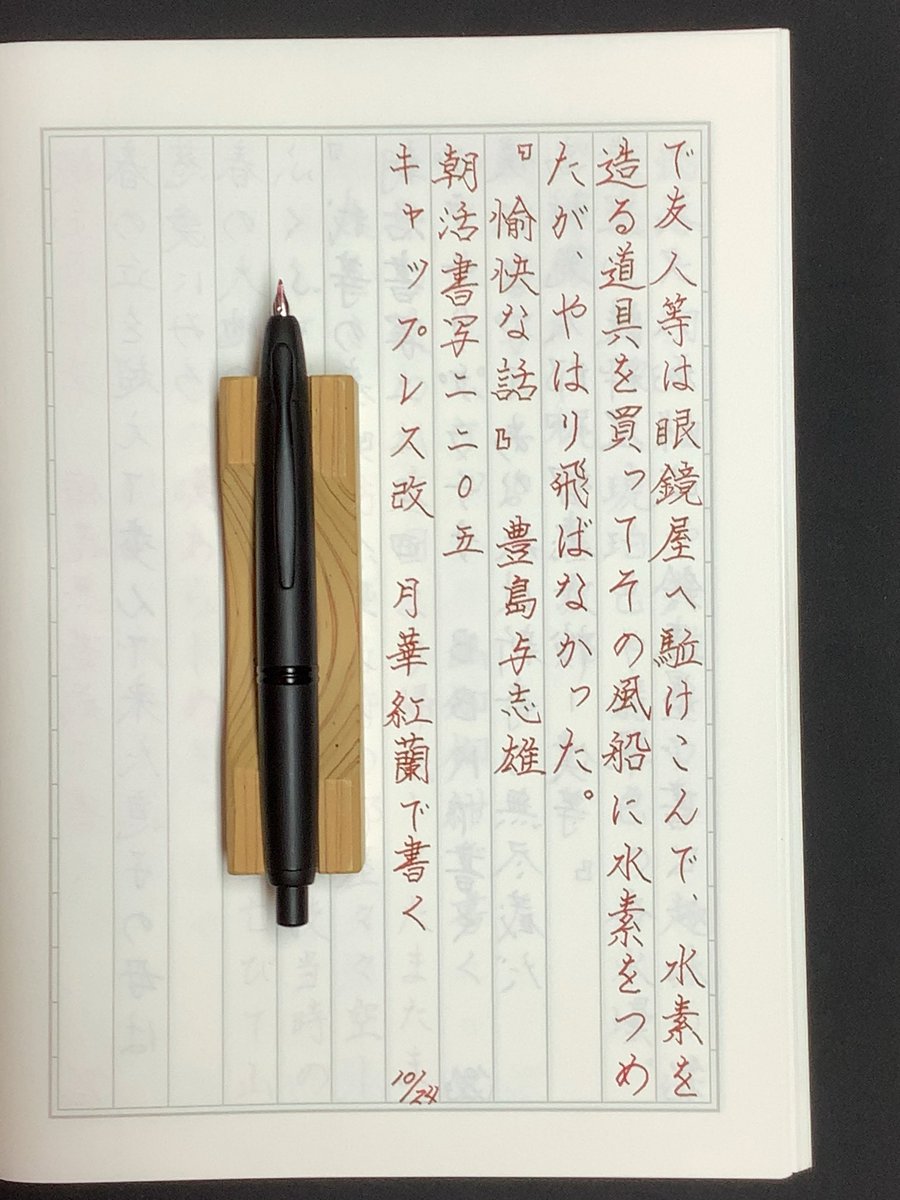 で友人等は眼鏡屋へ駈けこんで、水素を
造る道具を買ってその風船に水素をつめ
たが、やはり飛ばなかった。
『愉快な話』 豊島与志雄
朝活書写二二〇五
キャップレス改 月華紅蘭で書く
10/24